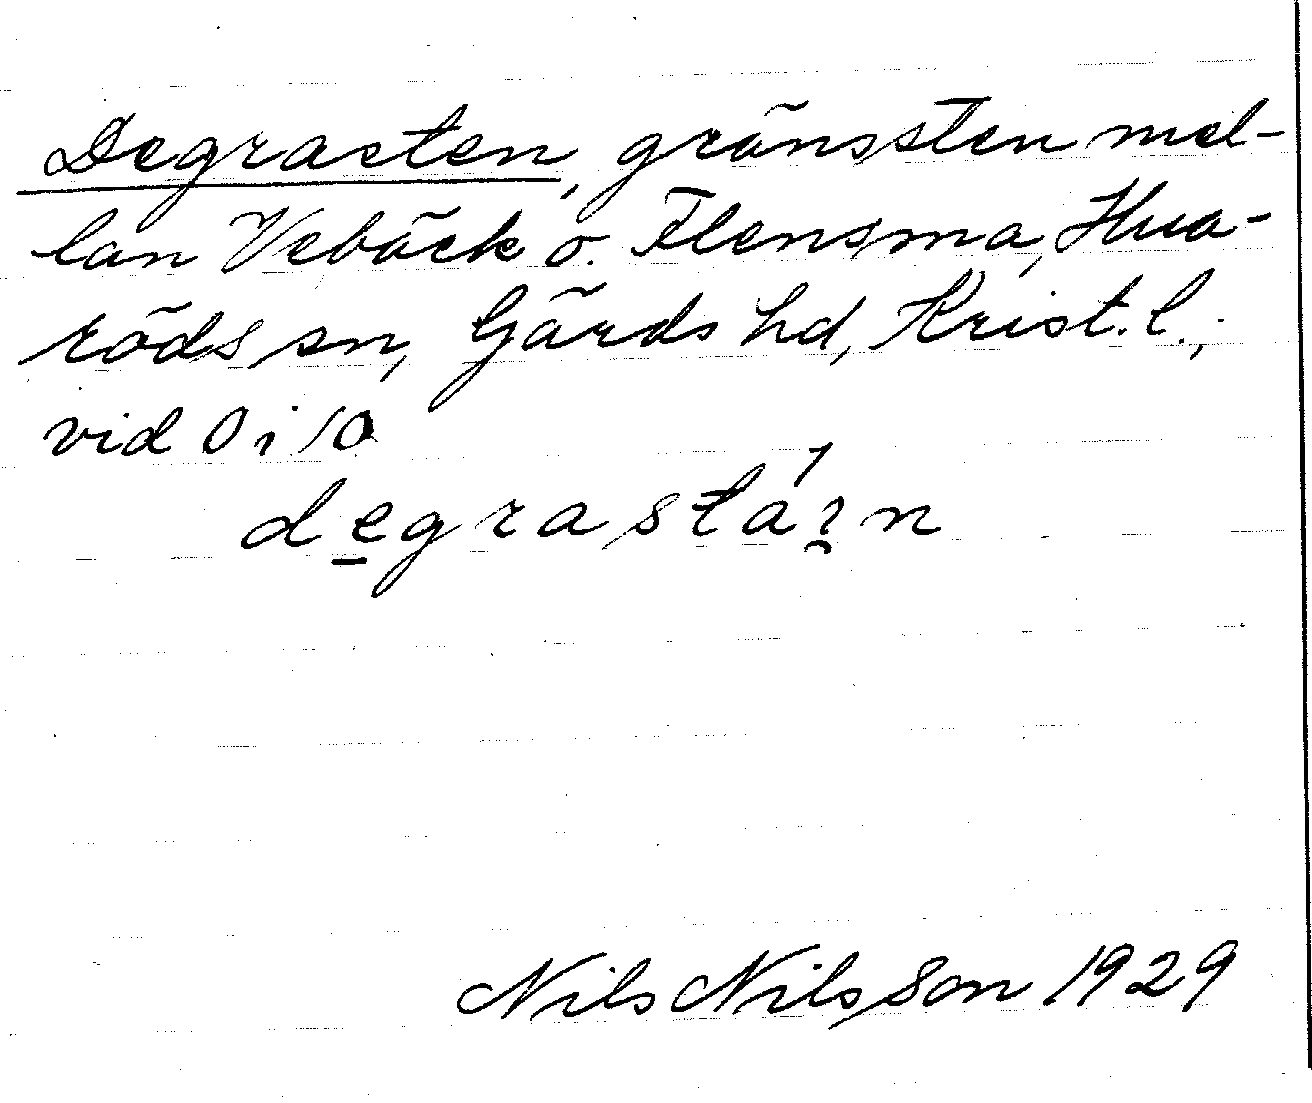 Degrasten, gränssten mel-
lan Vebäck o. Flensma, Hua-
röds sn, Gärds hd, Krist. l.,
vid O i 10
degrastáin
Nils Nilsson 1929